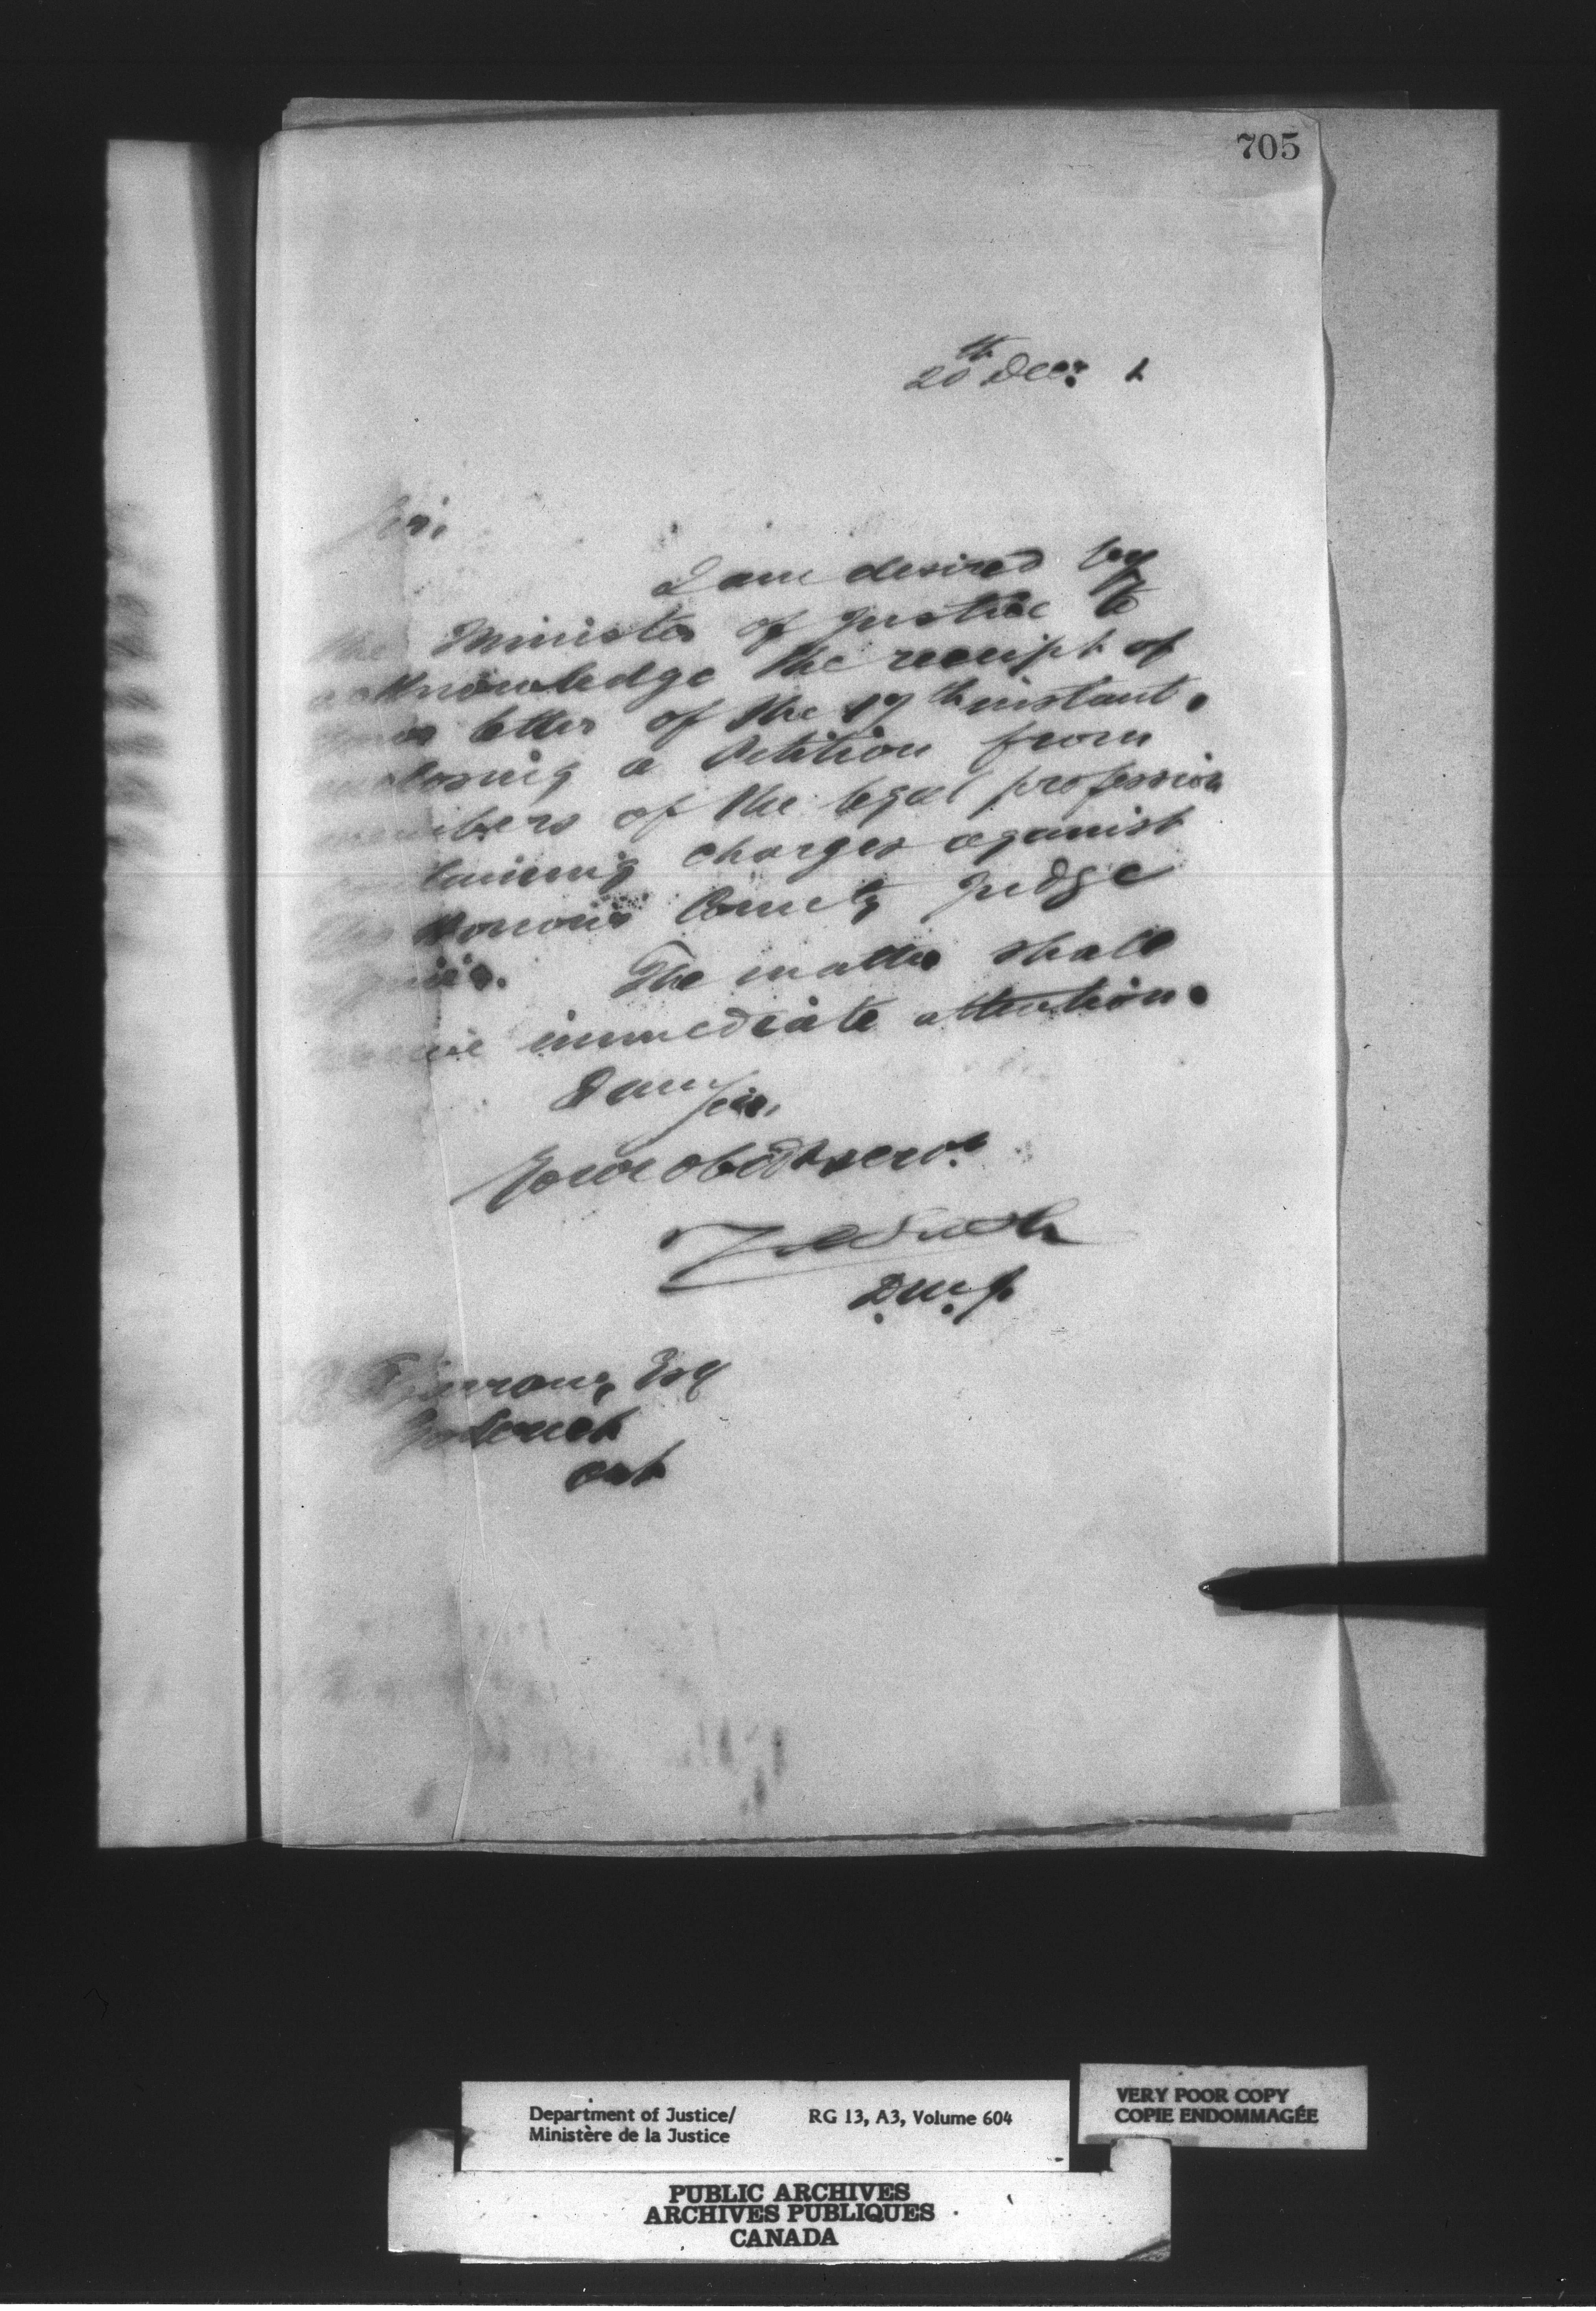 705
20th Decr 1
Sir,
I am desired by
the Minister of Justice to
acknowledge the receipt of
letter of the 17th instant.
enclosing a Petition from
members of the legal profession
containing charges against
His Honour County Judge
The matter shall
receive immediate attention.
I am Sir,
Your obedt servt
D.M.J.
Esq
Goderich
Ont
Department of Justice/ RG 13, A3, Volume 604
Ministère de la Justice
VERY POOR COPY
COPIE ENDOMMAGÉE
PUBLIC ARCHIVES
ARCHIVES PUBLIQUES
CANADA